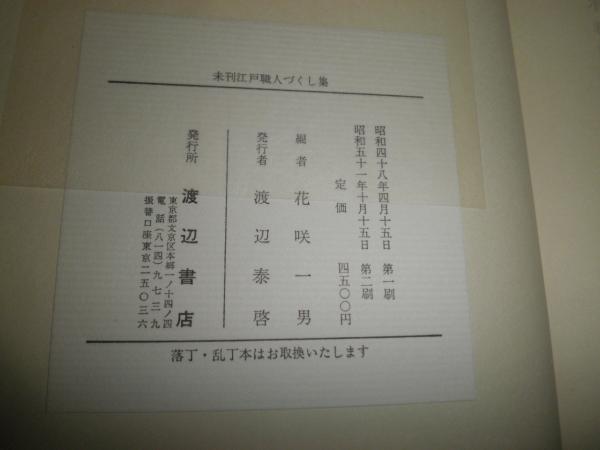 未刊江戸職人づくし集
昭和四十八年四月十五日　第一刷
昭和五十一年十月十五日　第二刷
定価　四五〇〇円
編者　花咲一男
発行者　渡辺泰啓
発行所　渡辺書店
東京都文京区本郷一ノ十四ノ四
電話(八一四)九七三九
振替口座東京二五〇三六
落丁・乱丁本はお取換いたします